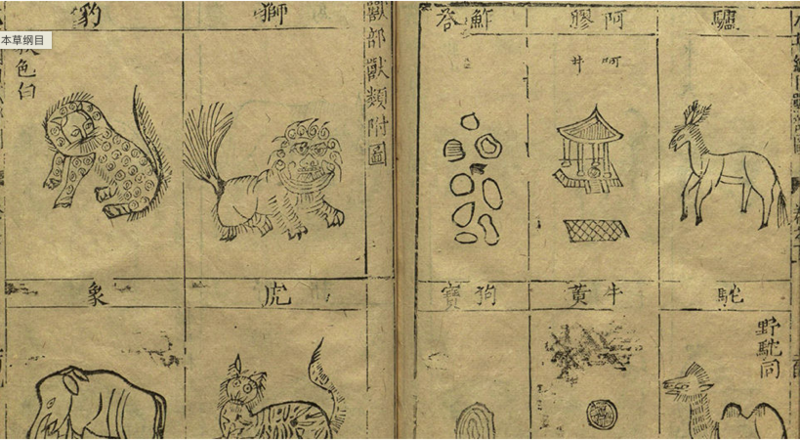 本草纲目
驢
阿膠
阿井
鮓荅
駝
野駝同
牛黃
狗寶
獸部獸類附圖
獅
豹
色白
虎
象